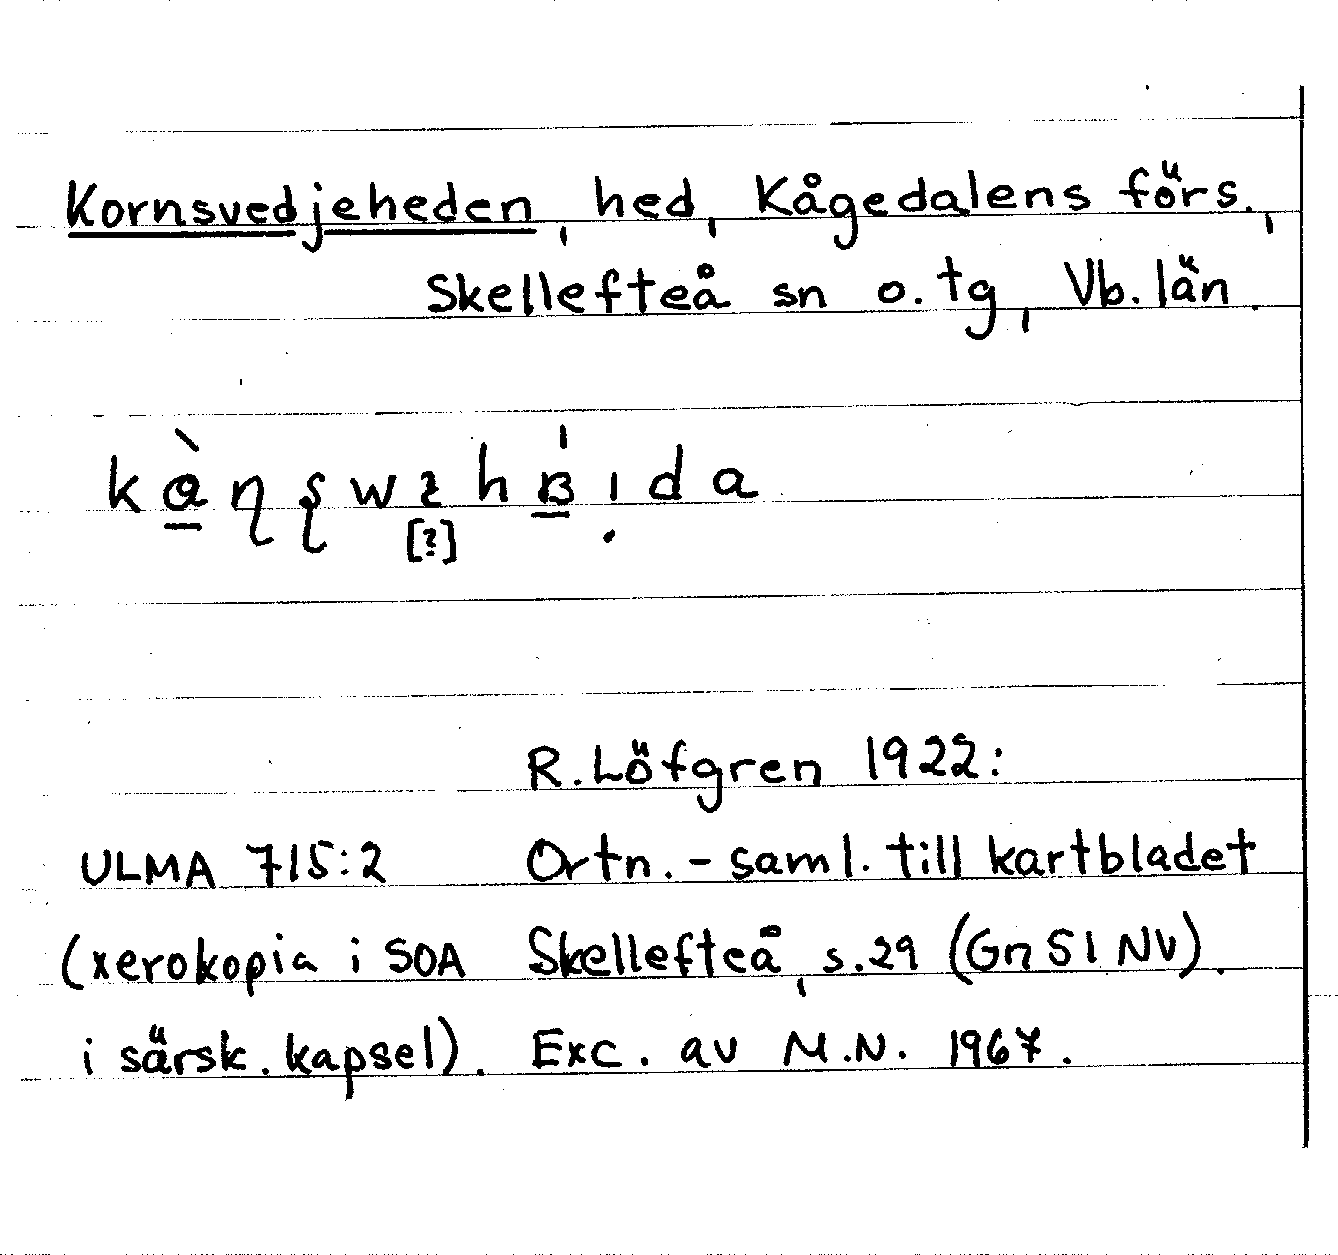 Kornsvedjeheden, hed, Kågedalens förs.,
Skellefteå sn o. tg, Vb. län.
[?]
R. Löfgren 1922:
ULMA 715:2 Ortn.-saml. till kartbladet
(xerokopia i SOA Skellefteå, s. 29 (Gn 51 NV).
i särsk. kapsel). Exc. av M.N. 1967.